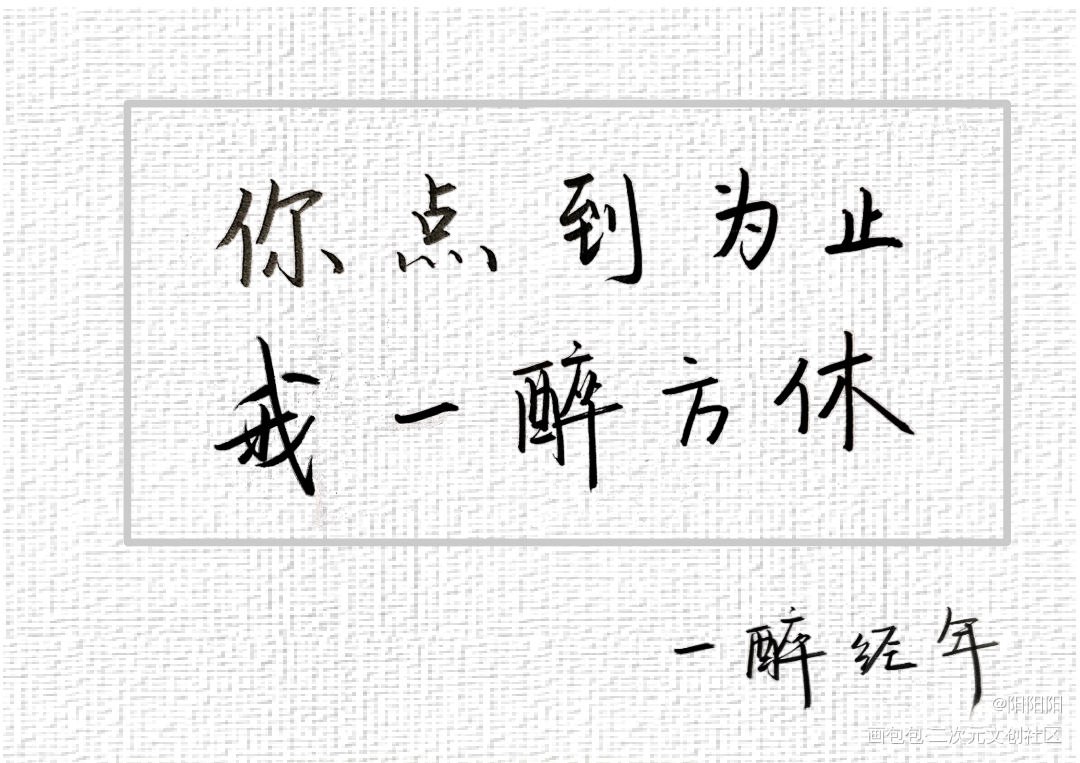 你点到为止
我一醉方休
一醉经年
@阳阳阳
画包包·二次元文创社区